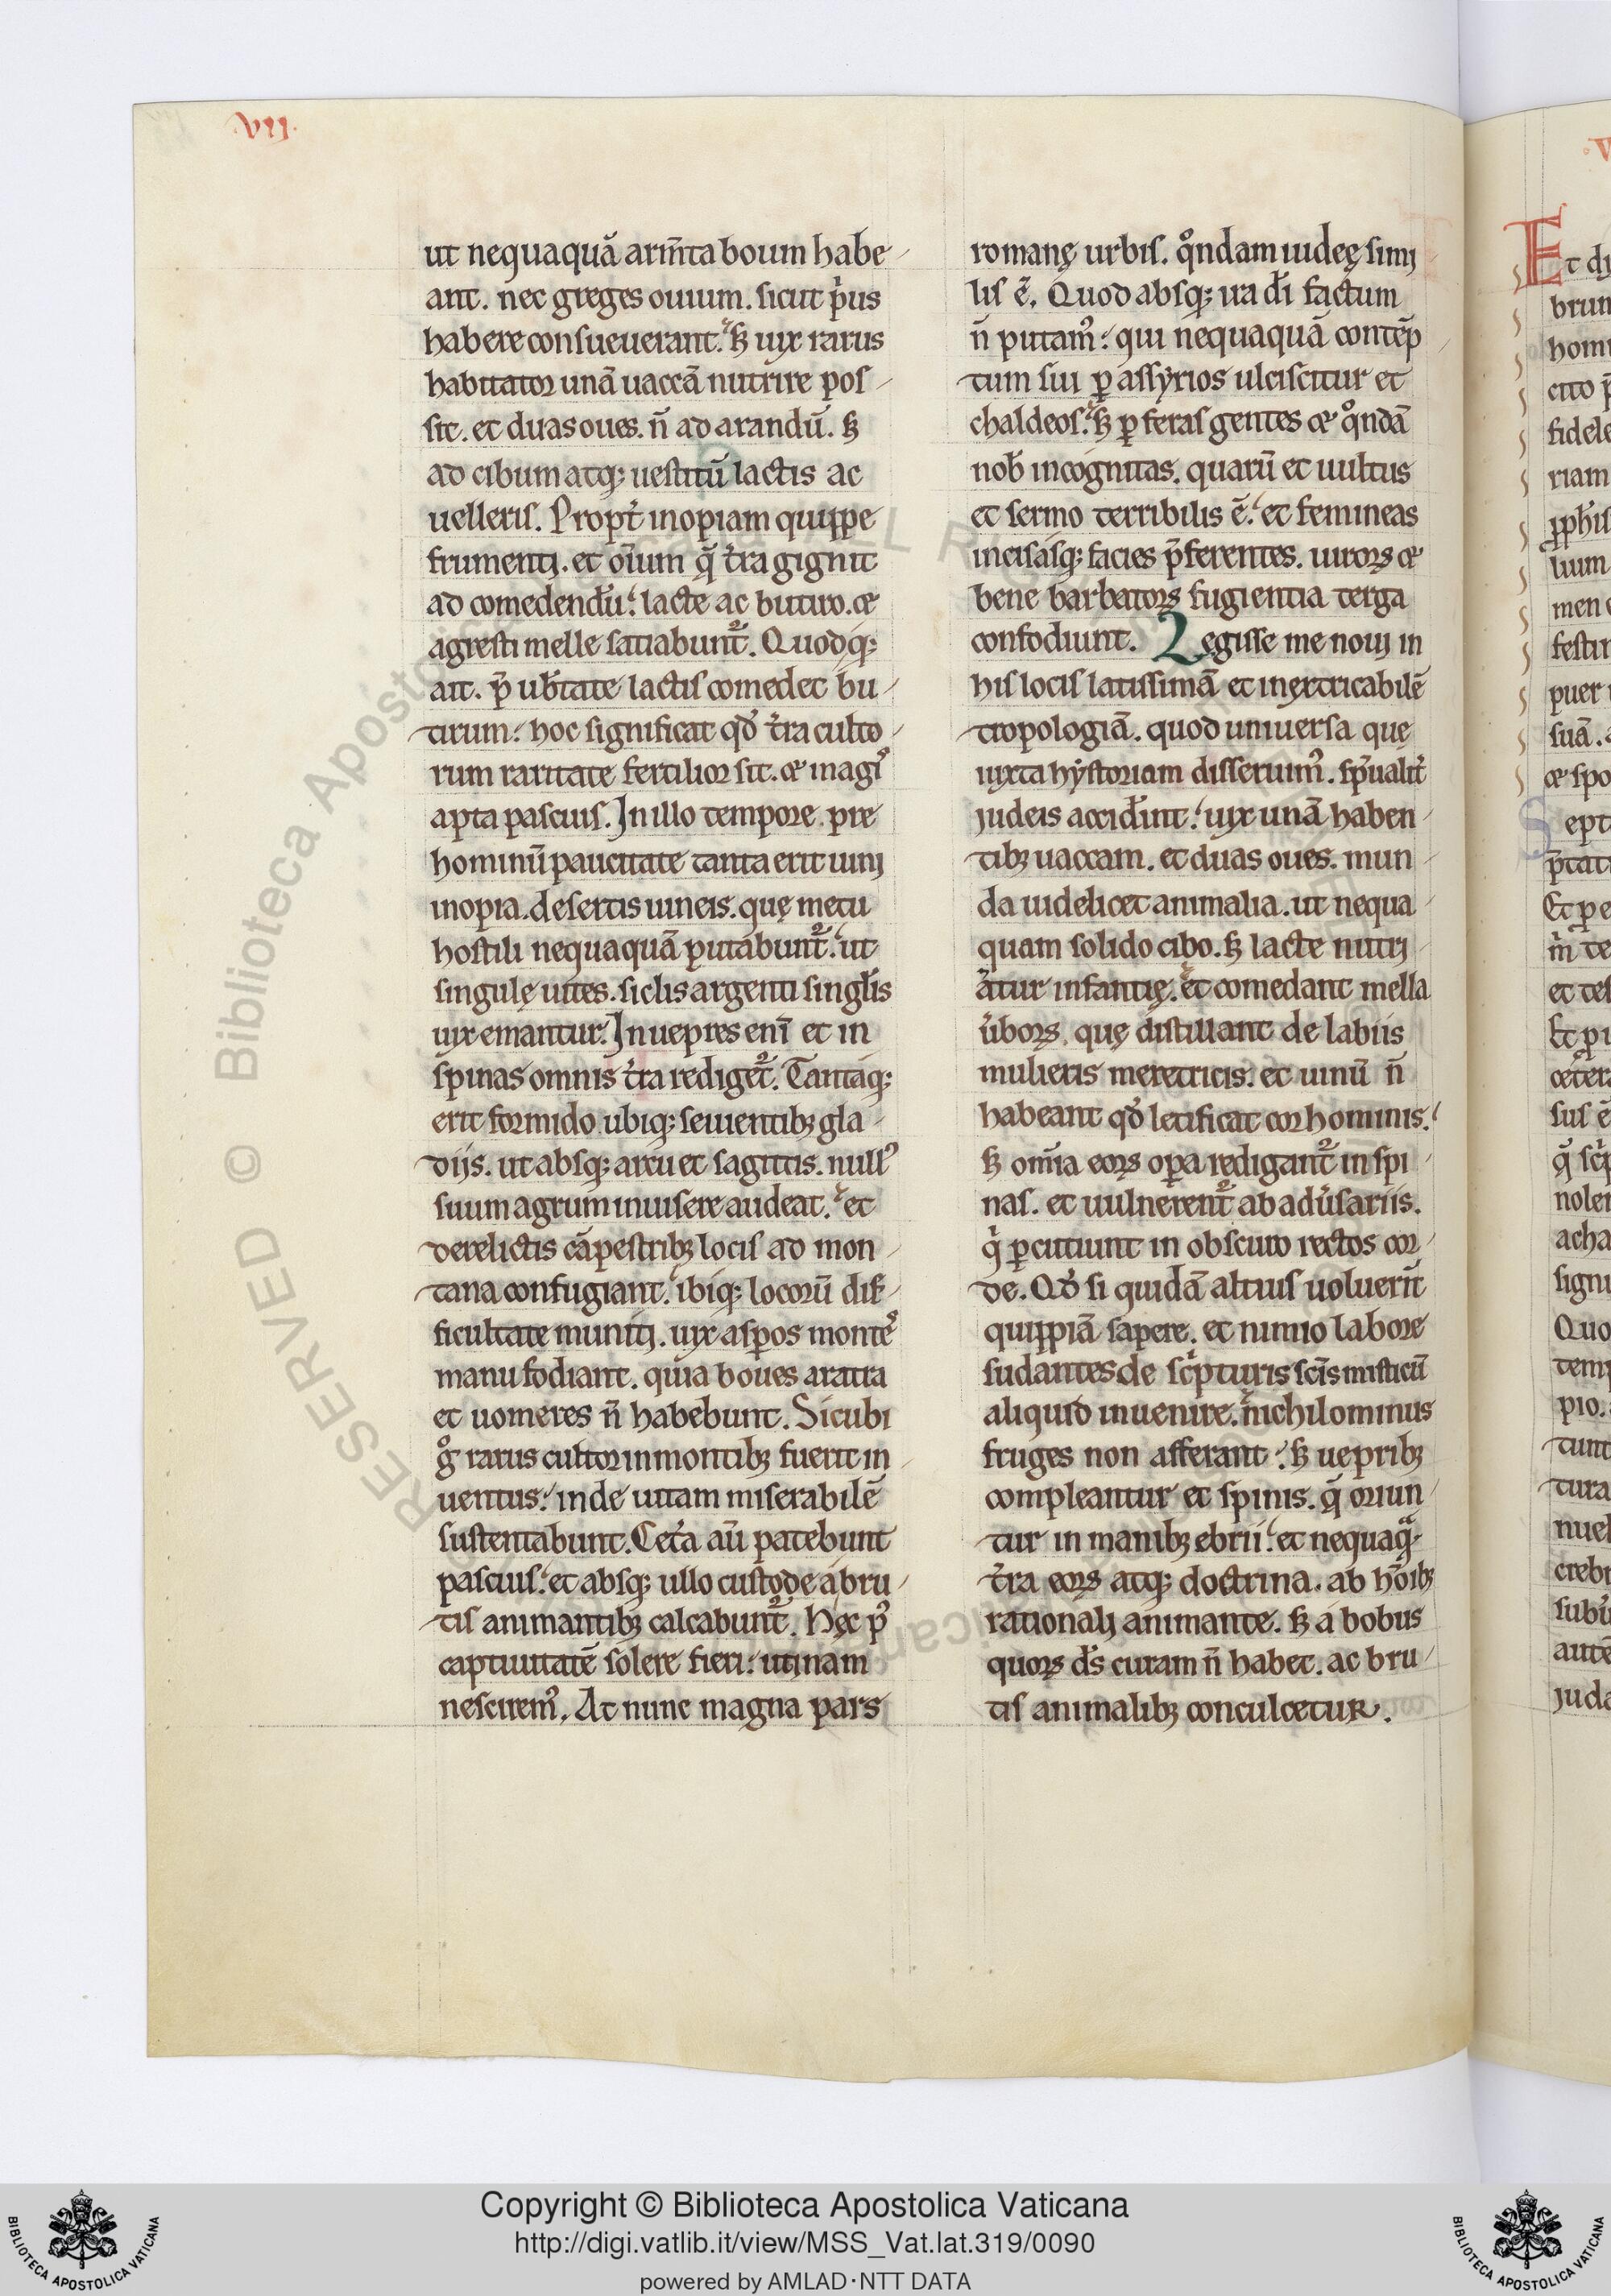 .VII.
ut nequaquā arm̄ta boum habe-
ant. nec greges ouium. sicut p̍us
habere consueuerant. sꝫ uix rarus
habitator unā uaccā nutrire pos-
sit. et duas oues. n̄ ad arandū. sꝫ
ad cibum atq; uestitū lactis ac
uelleris. Propt̾ inopiam quippe
frumenti. et om̄ium q̄ t̾ra gignit
ad comedendū. lacte ac butiro. &
agresti melle satiabunt᷑. Quodq;
ait. p̄ ub̾tate lactis comedet bu-
tirum: hoc significat qd̾ t̾ra culto-
rum raritate fertilior sit. & magiˢ
apta pascuis. In illo tempore. pre
hominū paucitate tanta erit uini
inopia. desertis uineis. quę metu
hostili nequaquā putabunt᷑. ut
singulę uites. siclis argenti singl̾is
uix emantur. In uepres enī et in
spinas omnis t̾ra rediget᷑. Tantaq;
erit formido ubiq; seuientibꝫ gla-
diis. ut absq; arcu et sagittis. nullꝰ
suum agrum inuisere audeat. et
derelictis cāpestribꝫ locis ad mon-
tana confugiant. ibiq; locorū dif-
ficultate muniti. uix asp̱os monteˢ
manu fodiant. quia boues aratra
et uomeres n̄ habebunt. Sicubi
gͦ rarus cultor in montibꝫ fuerit in-
uentus: inde uitam miserabilē
sustentabunt. Cet̾a aū patebunt
pascuis. et absq; ullo custode a bru-
tis animantibꝫ calcabunt᷑. Hęc pꝰ
captiuitatē solere fieri: utinam
nesciremꝰ. At nunc magna pars
romanę urbis. qͦndam iudeę simi
lis ē. Quod absq; ira dī factum
n̄ putamꝰ: qui nequaquā contēp-
tum sui ꝑ assyrios ulciscitur et
chaldeos. sꝫ ꝑ feras gentes & qͦndā
nob̄ incognitas. quarū et uultus
et sermo terribilis ē. et femineas
incisasq; facies p̄ferentes. uiroꝝ &
bene barbatoꝝ fugientia terga
confodiunt. Legisse me noui in
his locis latissimā et inextricabilē
tropologiā. quod uniuersa quę
iuxta hystoriam disseruimꝰ. sp̄ualit̾
iudeis accid̾int. uix unā haben-
tibꝫ uaccam. et duas oues. mun-
da uidelicet animalia. ut nequa-
quam solido cibo. sꝫ lacte nutri-
a᷑tur infantię. et comedant mella
u̾boꝝ. quę distillant de labiis
mulieris meretricis. et uinū n̄
habeant qd̾ letificat cor hominis.
sꝫ om̄ia eoꝝ oꝑa redigant᷑ in spi-
nas. et uulnerent᷑ ab adu̾sariis.
q̍ ꝑcutiunt in obscuro rectos cor-
de. Qd̾ si quidā altius uoluerīt
quippiā sapere. et nimio labore
sudantes de sc̍pturis sc̄is misticū
aliquid inuenire. nichilominus
fruges non afferant: sꝫ uepribꝫ
compleantur et spinis. q̄ oriun-
tur in manibꝫ ebrii. et nequaqᷓ
t̾ra eoꝝ atq; doctrina. ab ho̅ibꝫ
rationali animante. sꝫ a bobus
quoꝝ d̄s curam n̄ habet. ac bru-
tis animalibꝫ conculcetur.
Copyright © Biblioteca Apostolica Vaticana
http://digi.vatlib.it/view/MSS_Vat.lat.319/0090
powered by AMLAD·NTT DATA
BIBLIOTECA APOSTOLICA VATICANA
BIBLIOTECA APOSTOLICA VATICANA